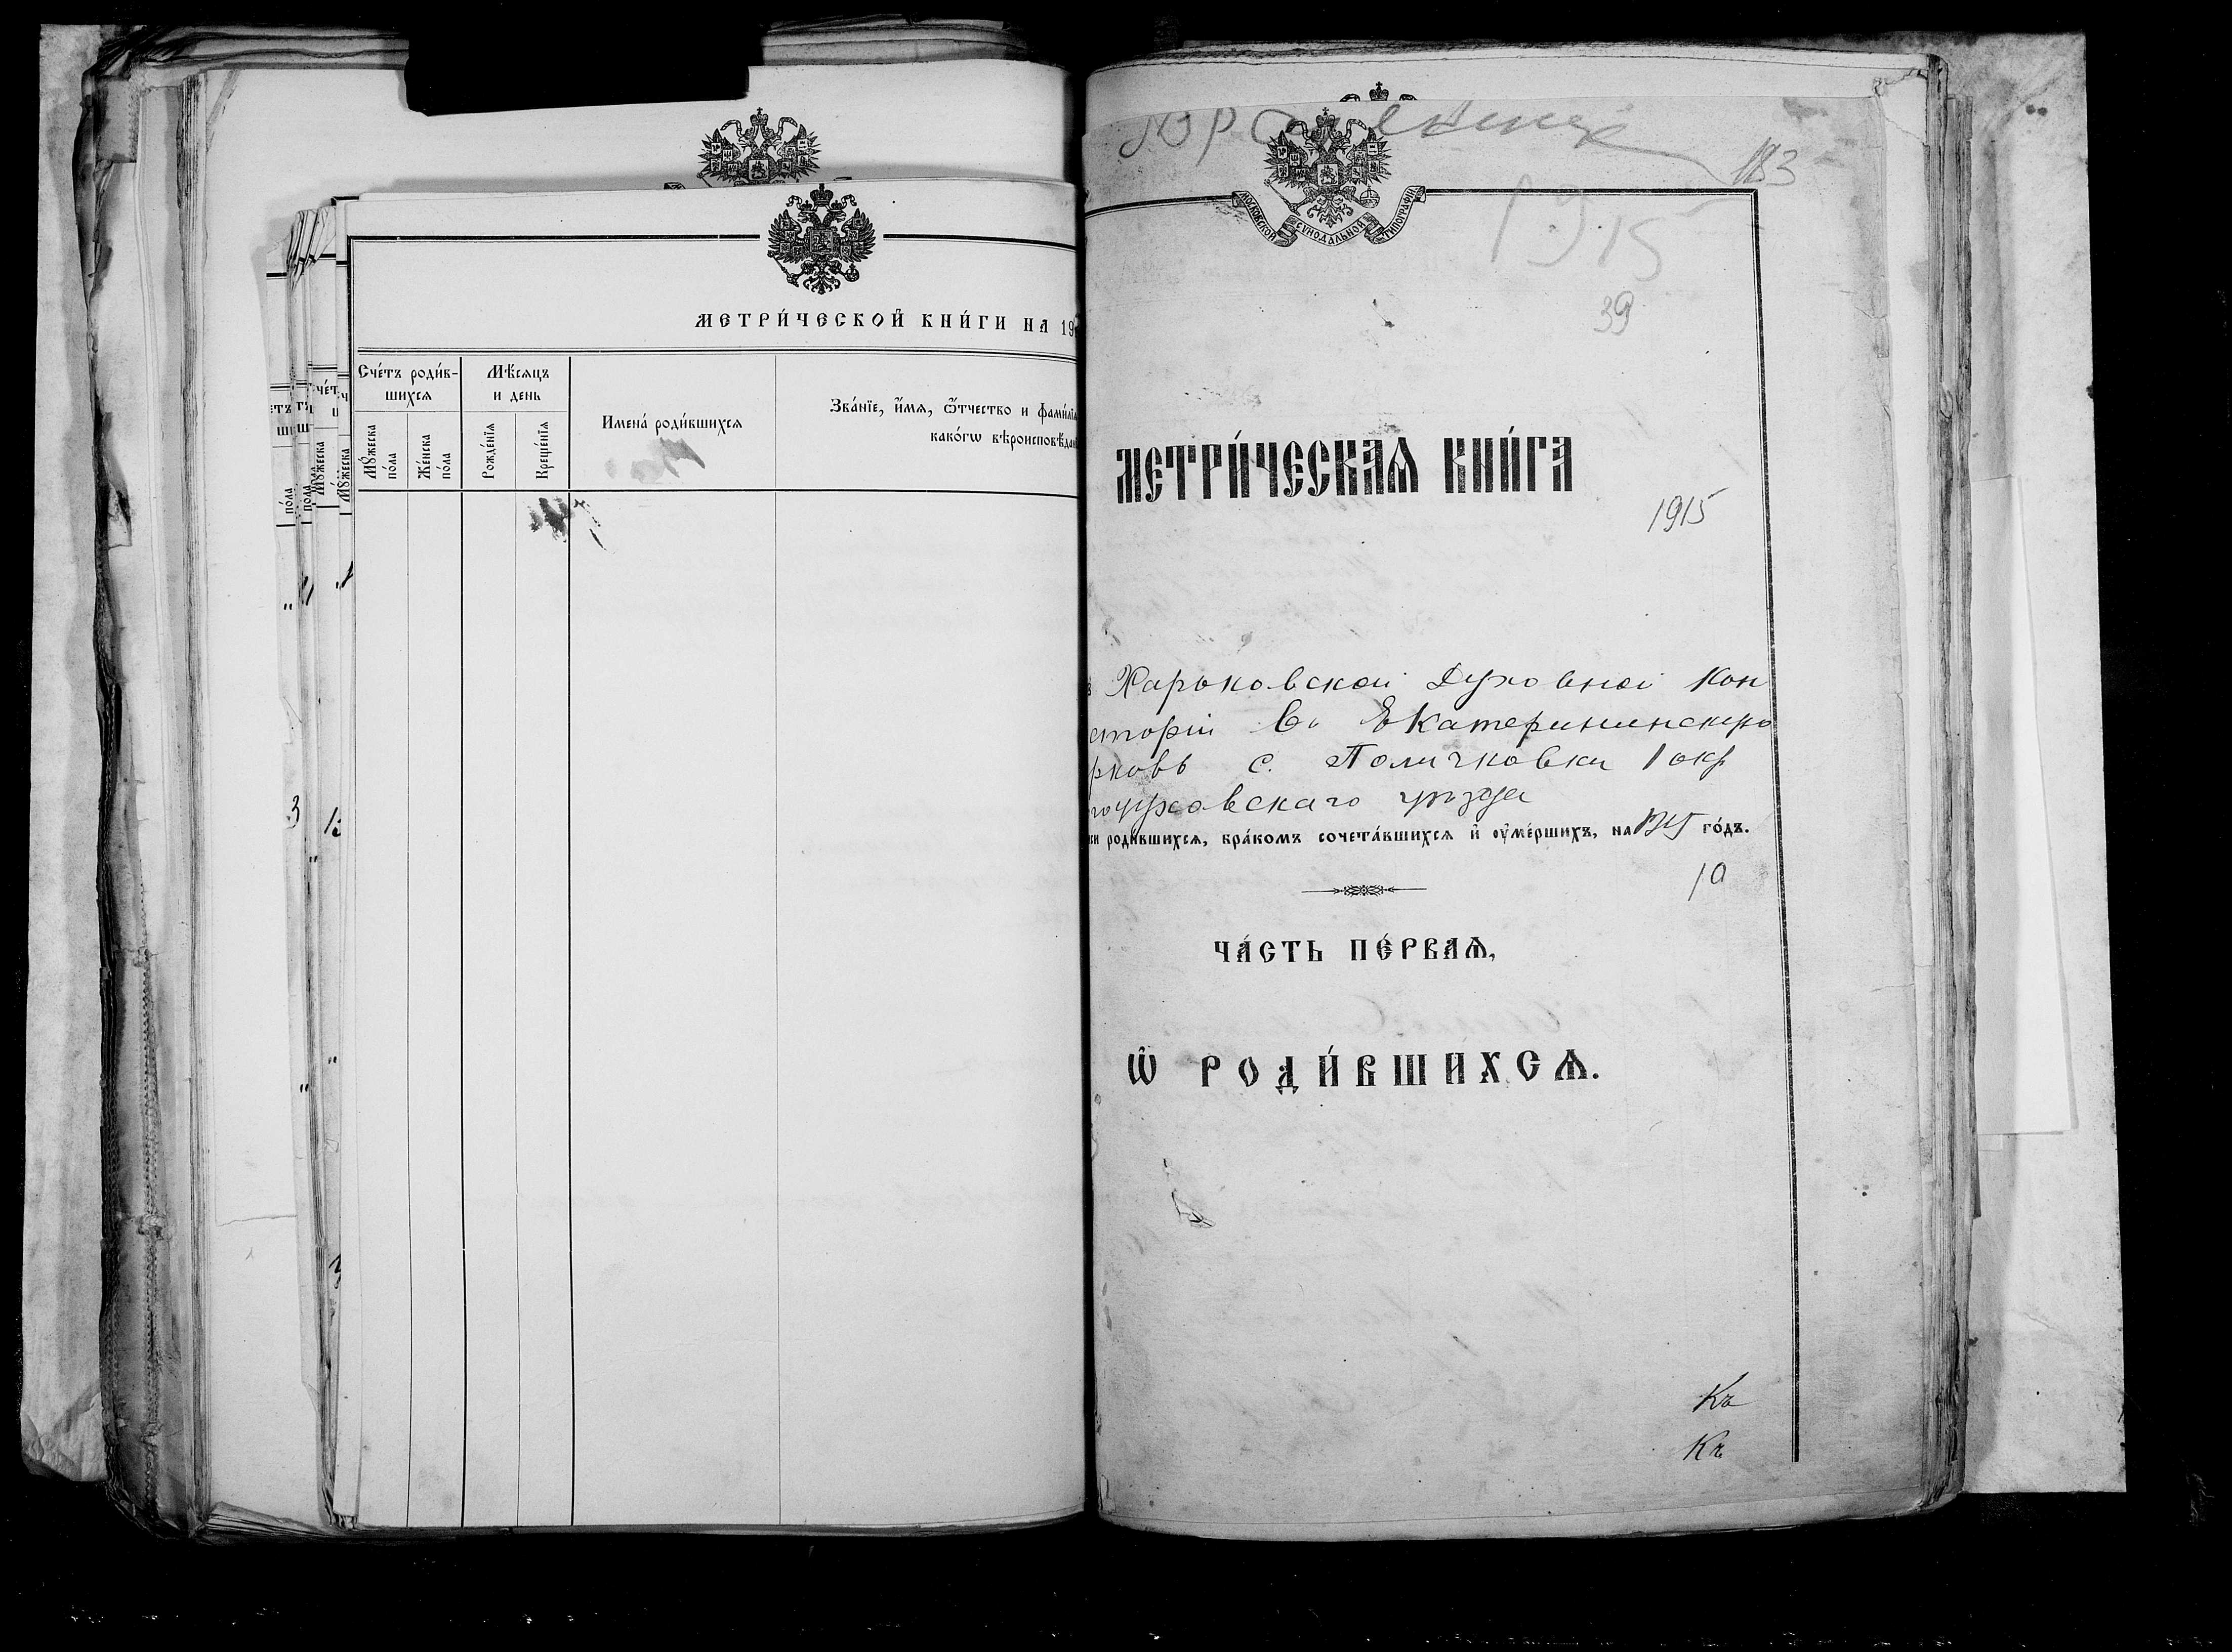 МЕТРИ́ЧЕСКОЙ КНИ́ГИ НА 19
Сче́тъ роди́в-
шихсѧ
Мѣ́сѧцъ
и день
Имена̀ роди́вшихсѧ
Зва́нїе, и́мѧ, ѻ҆́тчество и фами́лїѧ
како́гѡ вѣроисповѣ́дан
Мꙋ́жеска
по́ла
Же́нска
по́ла
Рожде́нїѧ
Креще́нїѧ
183
МОСКОВСКОЙ СѴНОДАЛЬНОЙ ТИПОГРАФІИ
1915
39
МЕТРИ́ЧЕСКАѦ КНИ́ГА
1915
Харьковской Духовной Кон
сторіи въ Екатерининскую
рковь с. Поличковки 1 окр
годуховскаго уѣзда
роди́вшихсѧ, бра́комъ сочета́вшихсѧ и҆ ᲂу҆ме́ршихъ, на 1915 го́дъ.
10
ЧА́СТЬ ПЕ́РВАѦ,
Ѡ҆ РОДИ́ВШИХСѦ.
Къ
Къ